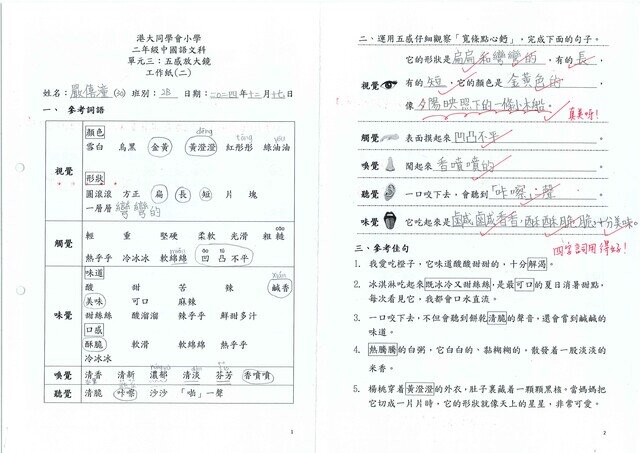 港大同學會小學
二年級中國語文科
單元三：五感放大鏡
工作紙(二)
班別：2B 日期：二○二四年十二月十七日
一、 參考詞語
視覺
顏色
děng
tōng
yóu
雪白 烏黑 金黃 黃澄澄 紅彤彤 綠油油
形狀
圓滾滾 方正 扁 長 短 片 塊
一層層 彎彎的
觸覺
輕 重 堅硬 柔軟 光滑 粗糙
熱乎乎 冷冰冰 軟綿綿 凹凸不平
味覺
味道
酸 甜 苦 辣 鹹香
美味 可口 麻辣
甜絲絲 酸溜溜 辣乎乎 鮮甜多汁
口感
酥脆 軟滑 軟綿綿 熱乎乎
冷冰冰
嗅覺 清香 清新 濃郁 清淡 芬芳 香噴噴
聽覺 清脆 咔嚓 沙沙 「啪」一聲
1
二、運用五感仔細觀察「寬條點心麪」，完成下面的句子。
視覺
它的形狀是扁扁和彎彎的，有的長，
有的短，它的顏色是金黃色的，
像夕陽映照下的一條小木船。
真美呀！
觸覺 表面摸起來凹凸不平。
嗅覺 聞起來香噴噴的。
聽覺 一口咬下去，會聽到「咔嚓」聲。
味覺 它吃起來是鹹鹹香香，酥酥脆脆，十分美味。
四字詞用得好！
三、參考佳句
1. 我愛吃橙子，它味道酸酸甜甜的，十分解渴。
2. 冰淇淋吃起來既冰冷又甜絲絲，是最可口的夏日消暑甜點，
每次看見它，我都會口水直流。
3. 一口咬下去，不但會聽到餅乾清脆的聲音，還會嘗到鹹鹹的
味道。
4. 熱騰騰的白粥，它白白的、黏糊糊的，散發着一股淡淡的
米香。
5. 楊桃穿着黃澄澄的外衣，肚子裏藏着一顆顆黑核。當媽媽把
它切成一片片時，它的形狀就像天上的星星，非常可愛。
2